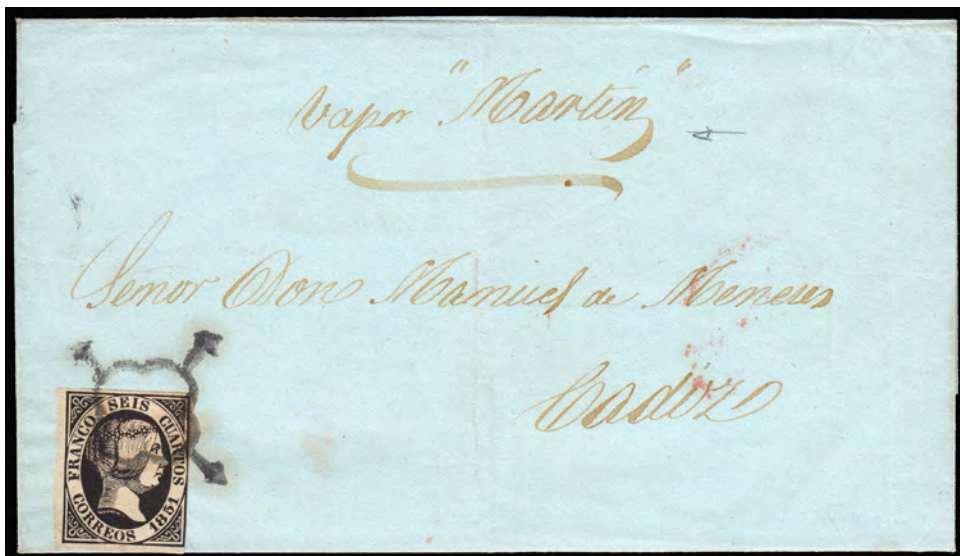 Vapor "Martin"
Señor Don Manuel de Meneses
Cadiz
FRANCO SEIS CUARTOS
CORREOS 1851